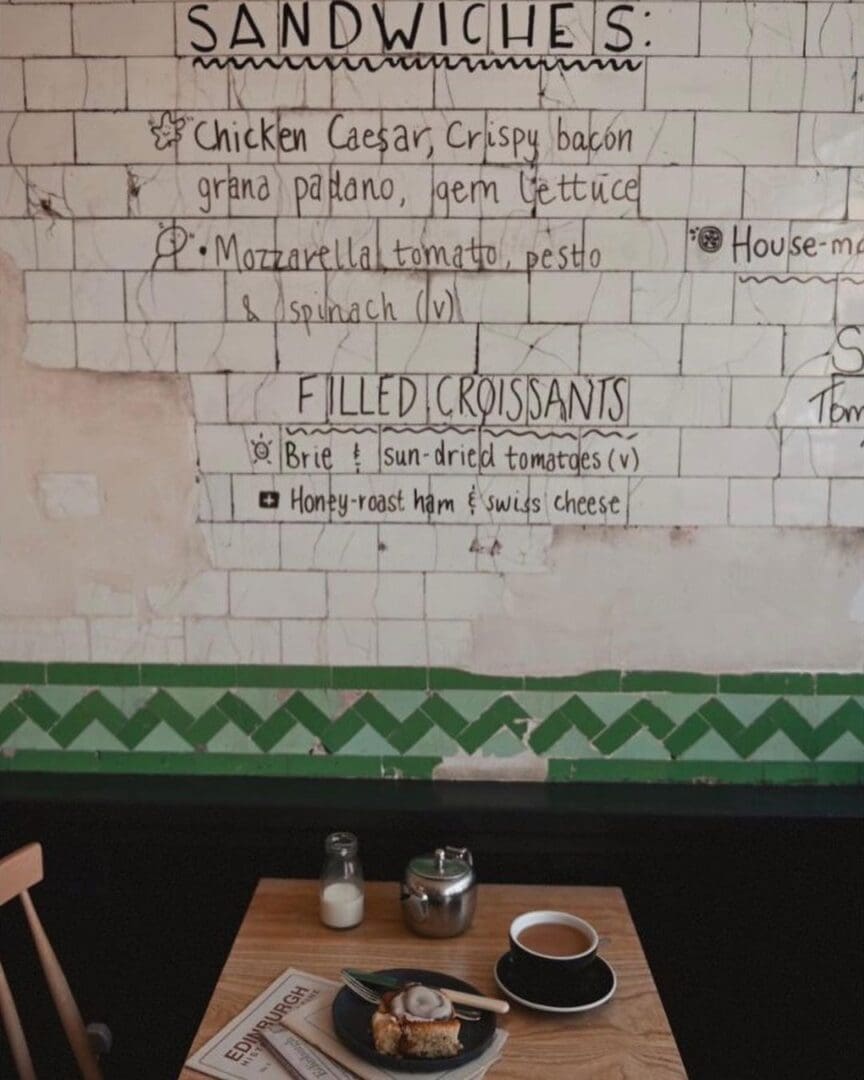 SANDWICHES:
Chicken Caesar, Crispy bacon
grana padano, gem lettuce
• Mozzarella tomato, pesto
& spinach (v)
House-ma
S
Tom
FILLED CROISSANTS
Brie & sun-dried tomatoes (v)
Honey-roast ham & swiss cheese
EDINBURGH
Edinburgh